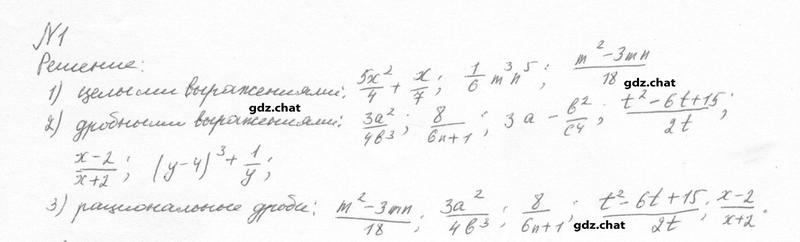 №1
Решение:
1) целыми выражениями: 5x²/4 + x/7; 1/6 m³n⁵; (m²-3mn)/18
gdz.chat gdz.chat
2) дробными выражениями: 3a²/4b³; 8/(6n+1); 3a - b²/c4; (t²-6t+15)/2t;
gdz.chat gdz.chat gdz.chat
(x-2)/(x+2); (y-4)³+1/y;
gdz.chat
3) рациональные дроби: (m²-3mn)/18; 3a²/4b³; 8/(6n+1); (t²-6t+15)/2t; (x-2)/(x+2).
gdz.chat gdz.chat